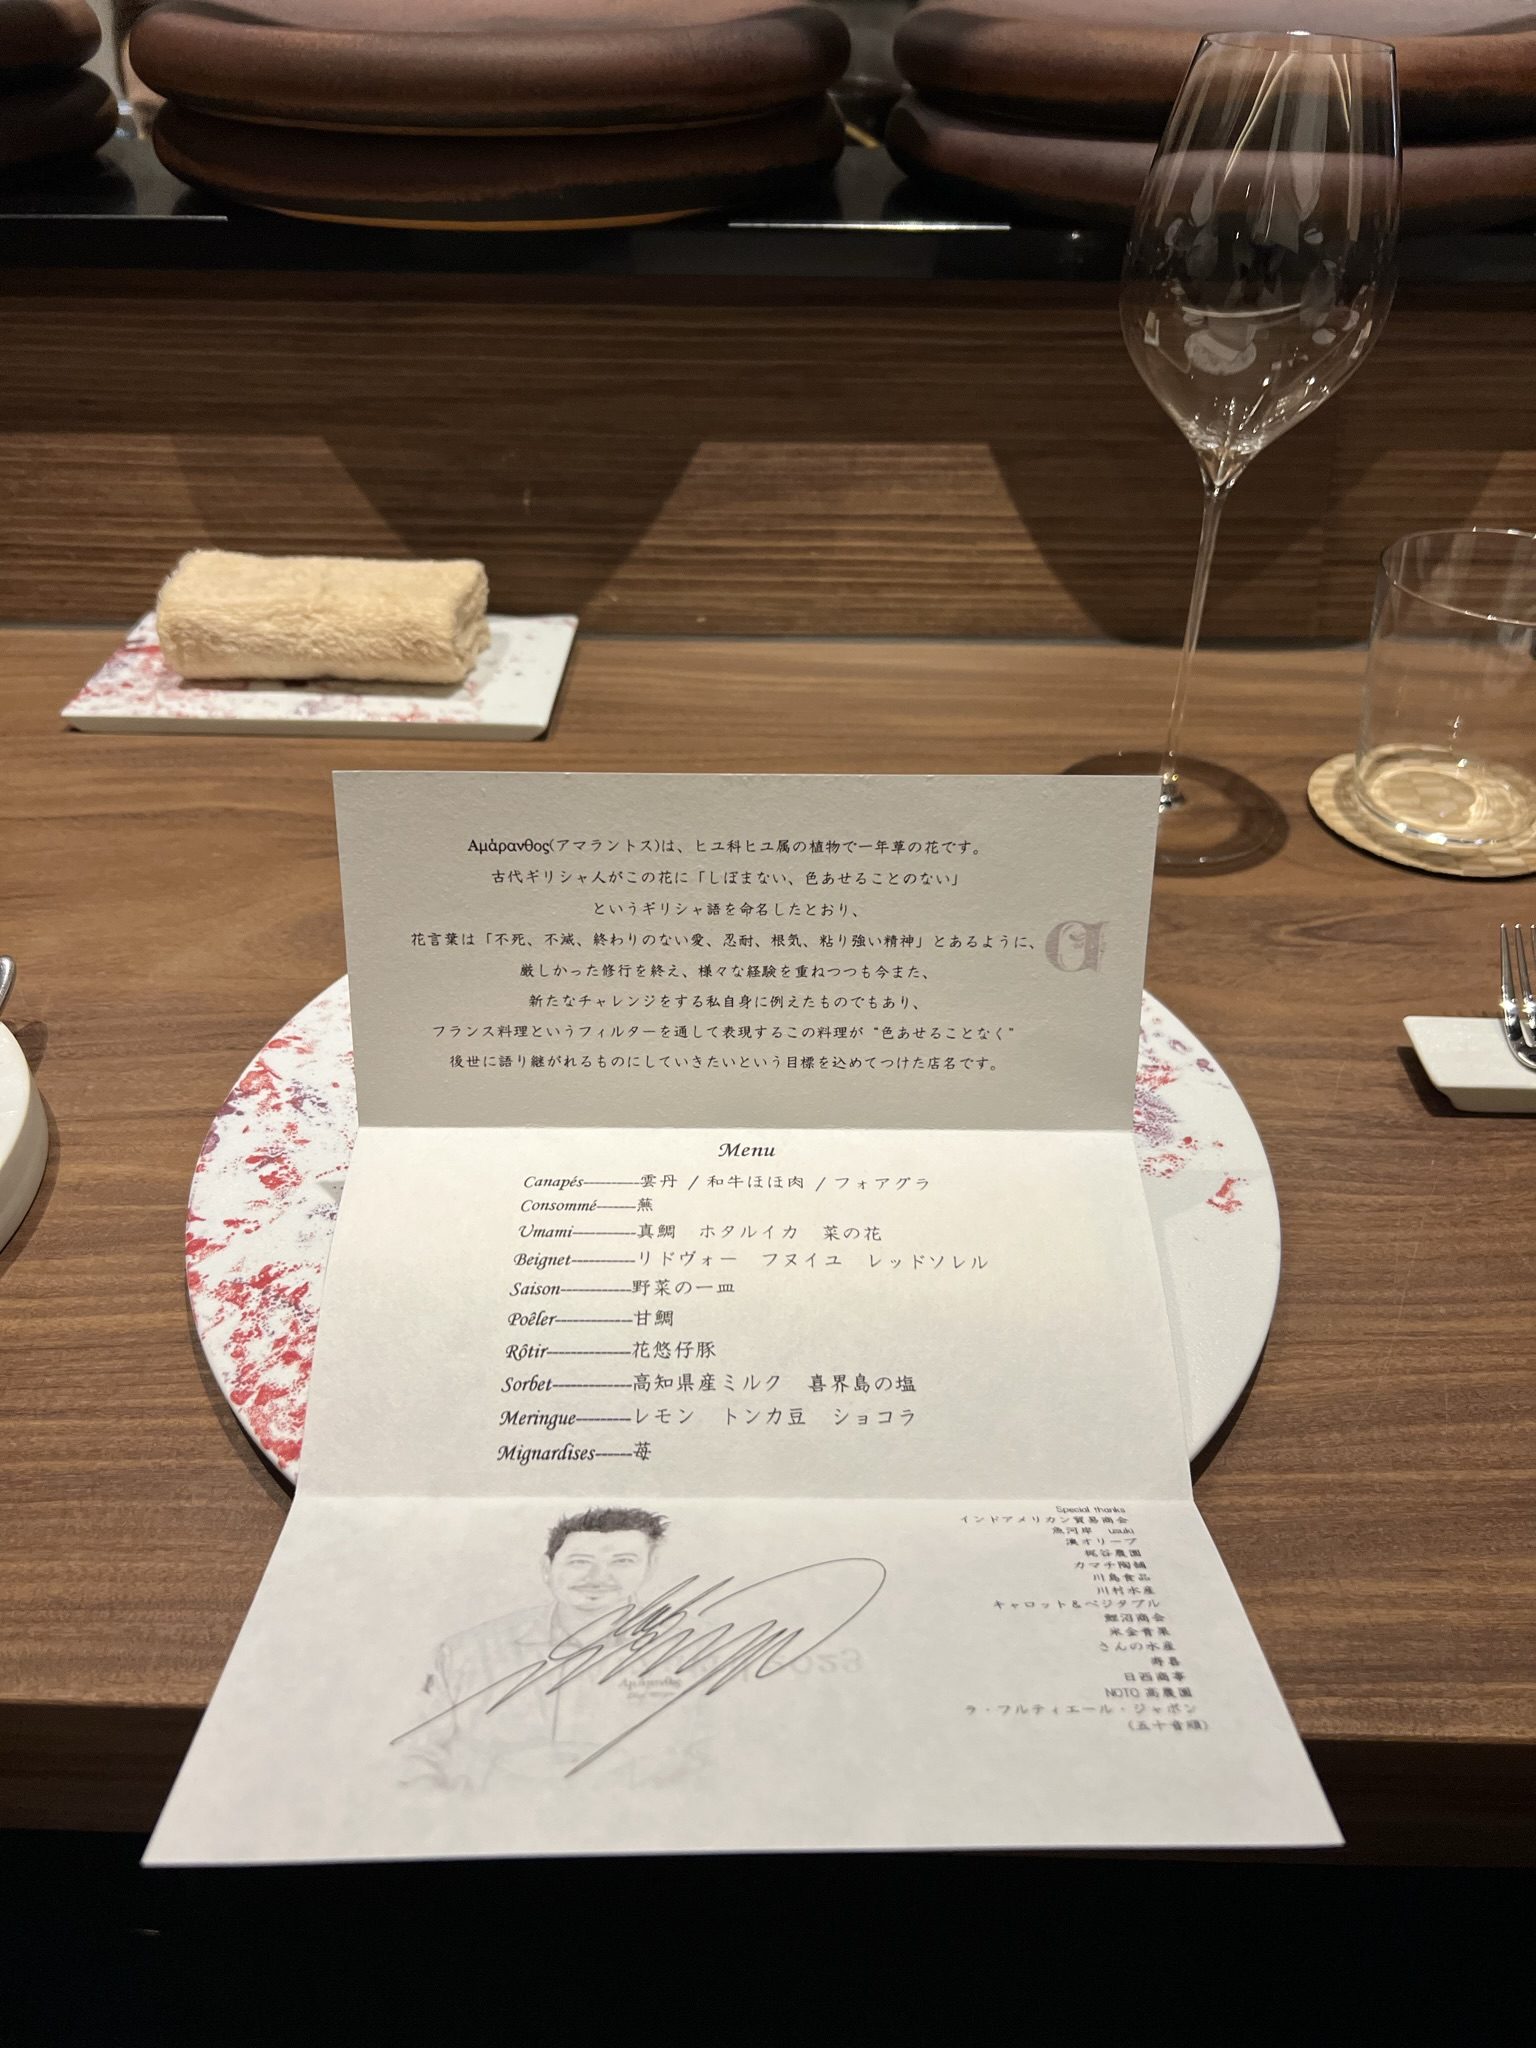 Αμάρανθος(アマラントス)は、ヒユ科ヒユ属の植物で一年草の花です。
古代ギリシャ人がこの花に「しぼまない、色あせることのない」
というギリシャ語を命名したとおり、
花言葉は「不死、不滅、終わりのない愛、忍耐、根気、粘り強い精神」とあるように、
厳しかった修行を終え、様々な経験を重ねつつも今また、
新たなチャレンジをする私自身に例えたものでもあり、
フランス料理というフィルターを通して表現するこの料理が“色あせることなく”
後世に語り継がれるものにしていきたいという目標を込めてつけた店名です。
Menu
Canapés---------雲丹 / 和牛ほほ肉 / フォアグラ
Consommé------蕪
Umami----------真鯛 ホタルイカ 菜の花
Beignet----------リドヴォー フヌイユ レッドソレル
Saison-----------野菜の一皿
Poêler------------甘鯛
Rôtir-------------花悠仔豚
Sorbet------------高知県産ミルク 喜界島の塩
Meringue--------レモン トンカ豆 ショコラ
Mignardises------苺
Special thanks
インドアメリカン貿易商会
魚河岸 usuki
澳オリーブ
梶谷農園
カマチ陶舗
川島食品
川村水産
キャロット&ベジタブル
鯉沼商会
米金青果
さんの水産
寿喜
日西商事
NOTO 高農園
ラ・フルティエール・ジャポン
(五十音順)